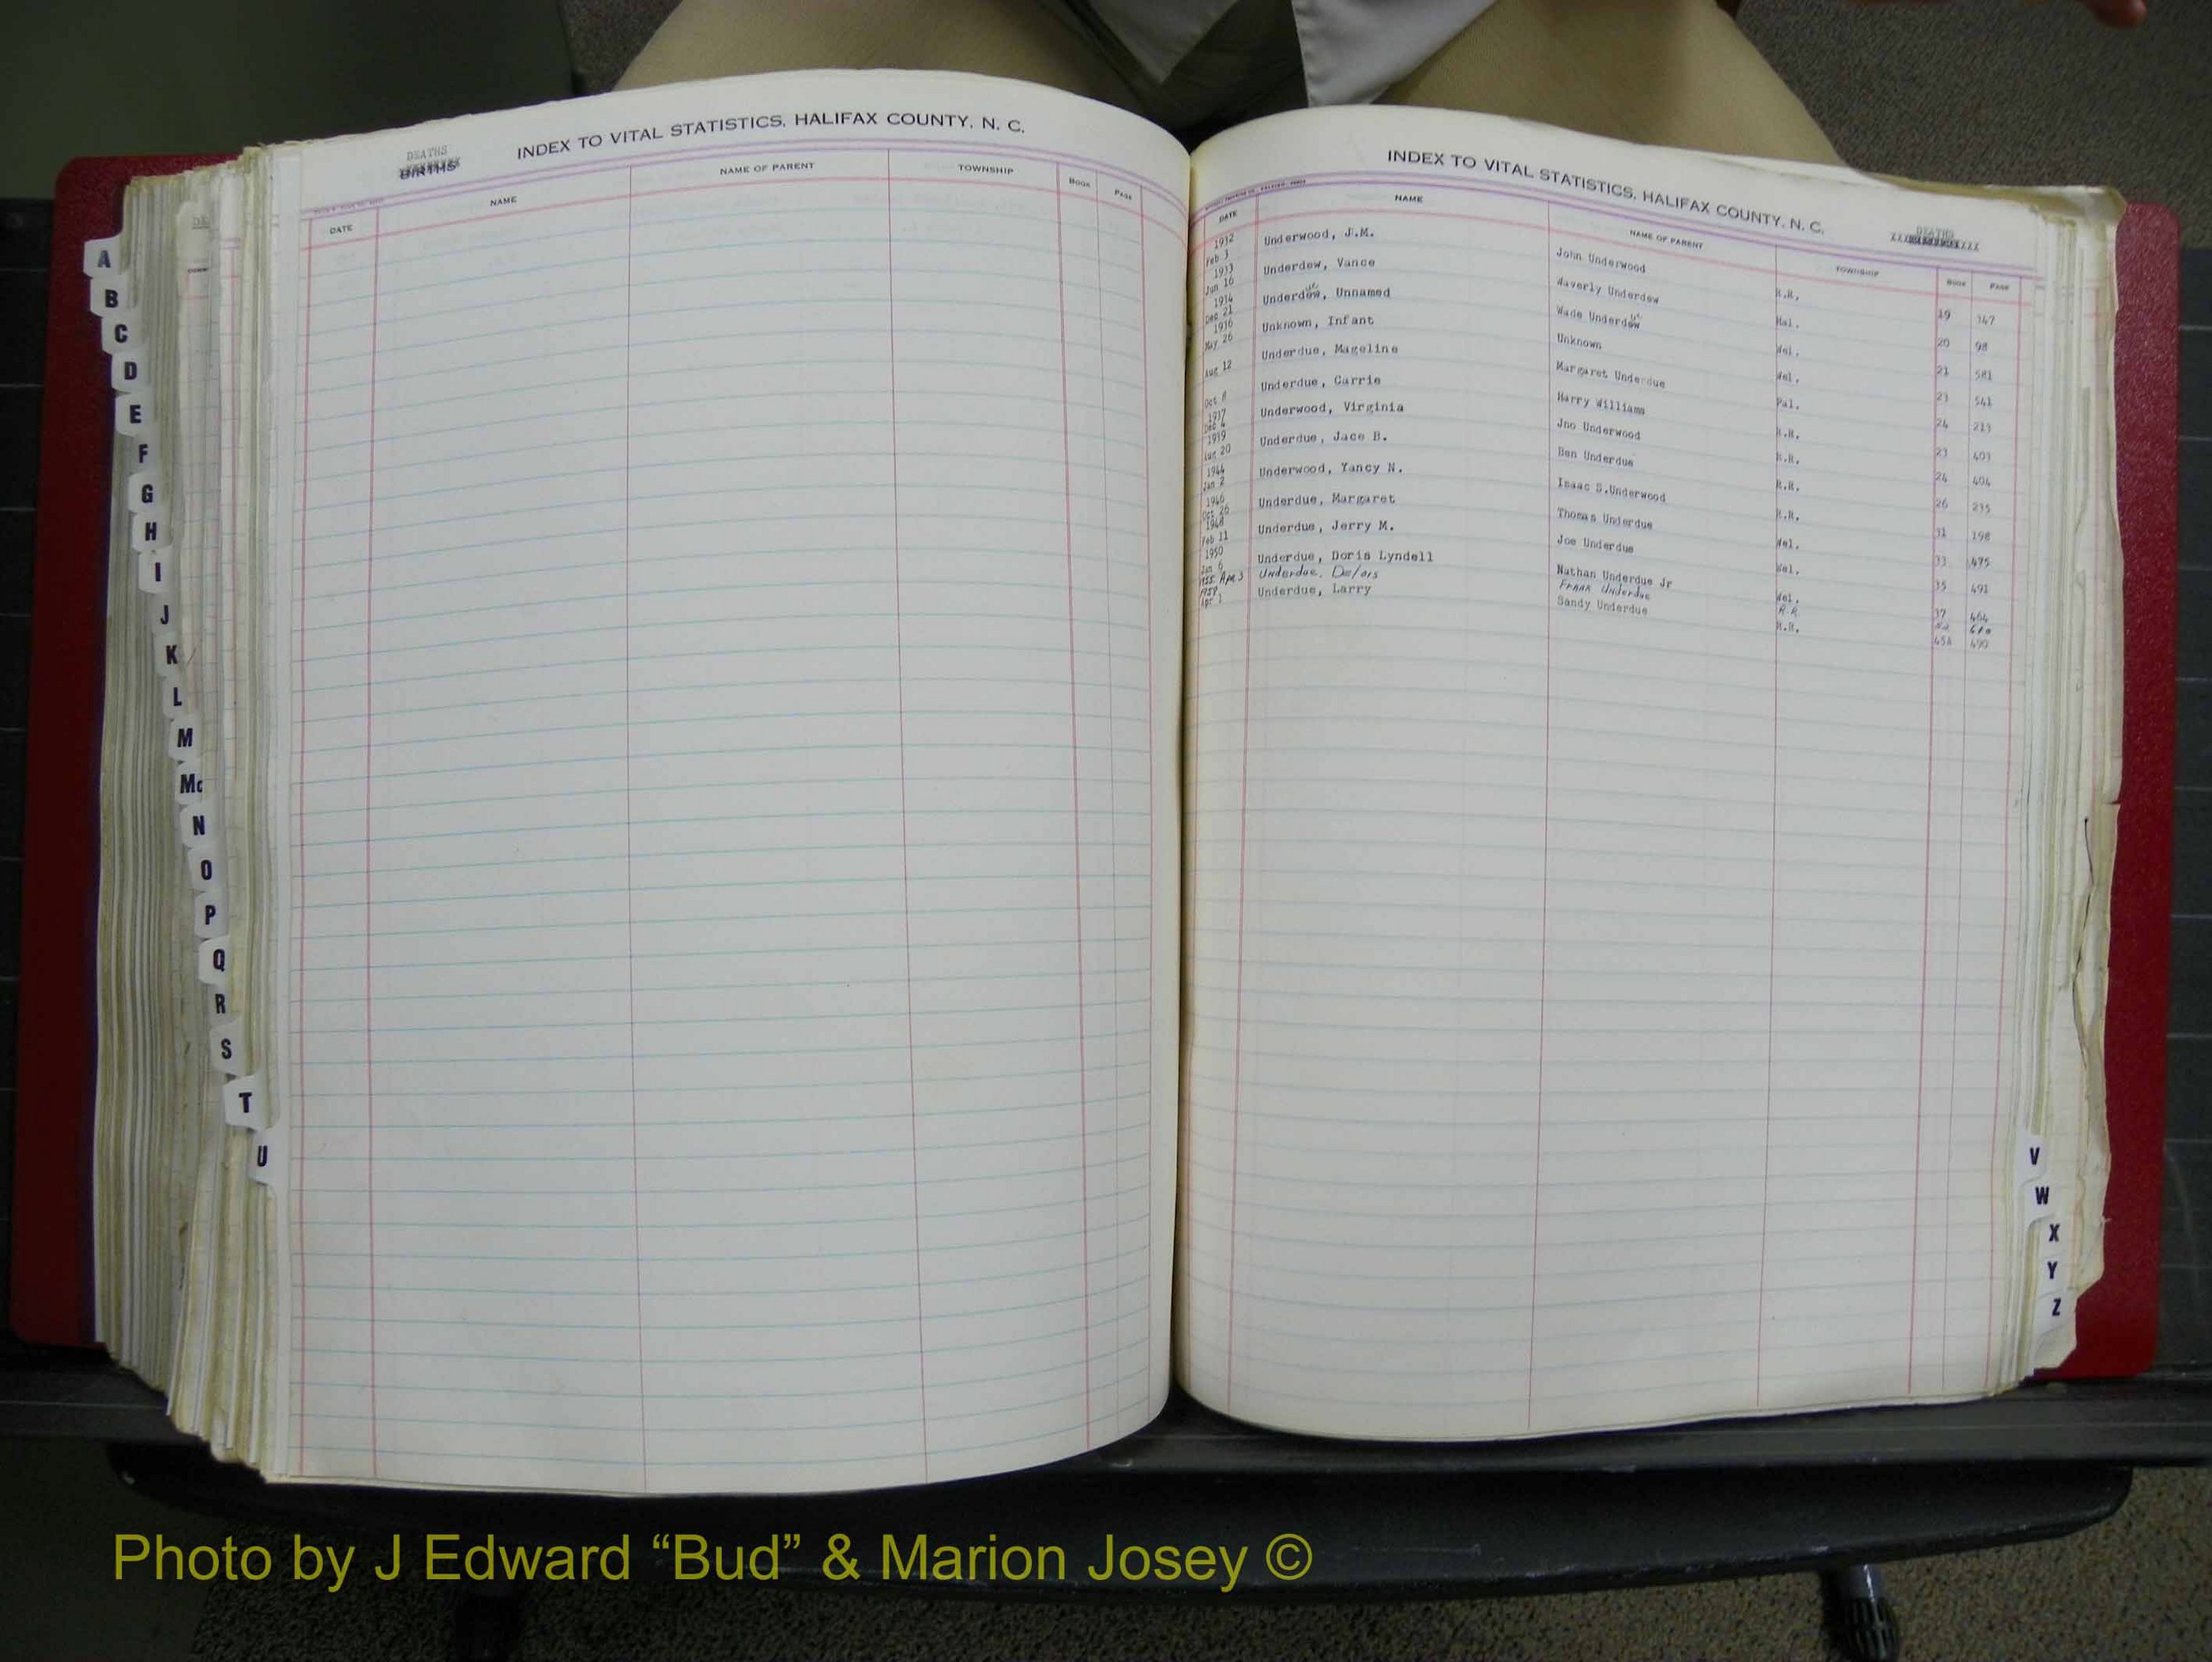 DEATHS
BIRTHS
INDEX TO VITAL STATISTICS, HALIFAX COUNTY, N. C.
DATE NAME NAME OF PARENT TOWNSHIP BOOK PAGE
INDEX TO VITAL STATISTICS, HALIFAX COUNTY, N. C.
DEATHS
DATE NAME NAME OF PARENT TOWNSHIP BOOK PAGE
1932
Feb 3 Underwood, J.M. John Underwood R.R. 19 347
1933
Jun 16 Underdew, Vance Waverly Underdew Hal. 20 98
1934
Dec 21 Underdew, Unnamed Wade Underdew Wel. 21 581
1936
May 26 Unknown, Infant Unknown Wel. 23 541
Aug 12 Underdue, Mageline Margaret Underdue Pal. 24 213
Oct 8 Underdue, Carrie Harry Williams R.R. 23 403
1937
Dec 4 Underwood, Virginia Jno Underwood R.R. 24 404
1939
Aug 20 Underdue, Jace B. Ben Underdue R.R. 26 235
1944
Jan 2 Underwood, Yancy N. Isaac S.Underwood R.R. 31 198
1946
Oct 26 Underdue, Margaret Thomas Underdue Wel. 33 475
1948
Feb 11 Underdue, Jerry M. Joe Underdue Wel. 35 491
1950
Jan 6 Underdue, Doris Lyndell Nathan Underdue Jr Wel. 37 464
1955 Apr 3 Underdue, Delois Frank Underdue R.R. 610
1959
Apr 1 Underdue, Larry Sandy Underdue R.R. 45A 490
A
B
C
D
E
F
G
H
I
J
K
L
M
Mc
N
O
P
Q
R
S
T
U
V
W
X
Y
Z
Photo by J Edward “Bud” & Marion Josey ©